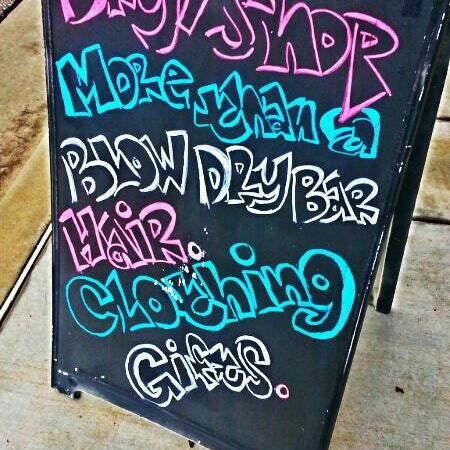 Dry / Shop
More than a
Blow Dry Bar
Hair.
Clothing
Gifts.